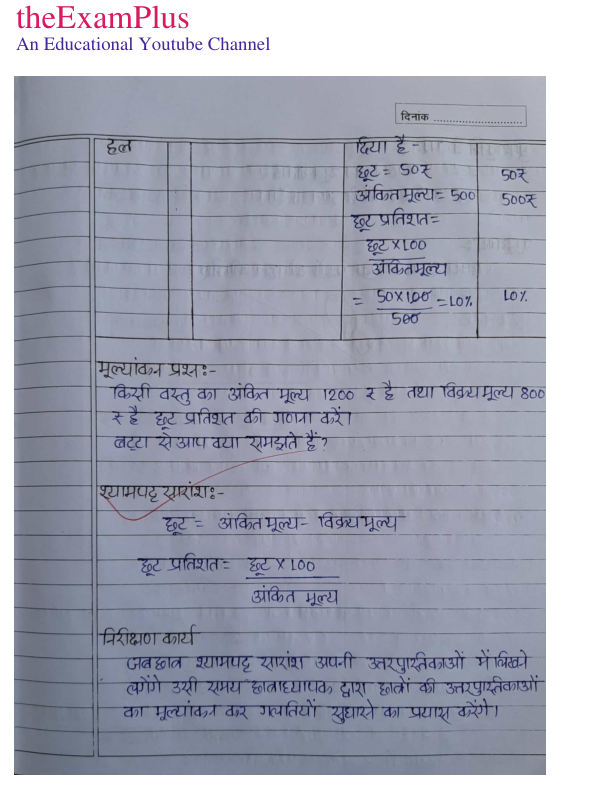 theExamPlus
An Educational Youtube Channel
दिनांक ............................
हल
दिया है -
छूट = 50₹
50₹
अंकित मूल्य = 500
500₹
छूट प्रतिशत =
छूट × 100
अंकित मूल्य
= 50×100 = 10%
10%
500
मूल्यांकन प्रश्न :-
किसी वस्तु का अंकित मूल्य 1200 ₹ है तथा विक्रय मूल्य 800
₹ है छूट प्रतिशत की गणना करें।
बट्टा से आप क्या समझते हैं?
श्यामपट्ट सारांश :-
छूट = अंकित मूल्य - विक्रय मूल्य
छूट प्रतिशत = छूट × 100
अंकित मूल्य
निरीक्षण कार्य
जब छात्र श्यामपट्ट सारांश अपनी उत्तरपुस्तिकाओं में लिखने
लगेंगे उसी समय छात्राध्यापक द्वारा छात्रों की उत्तरपुस्तिकाओं
का मूल्यांकन कर गलतियाँ सुधारने का प्रयास करेंगे।